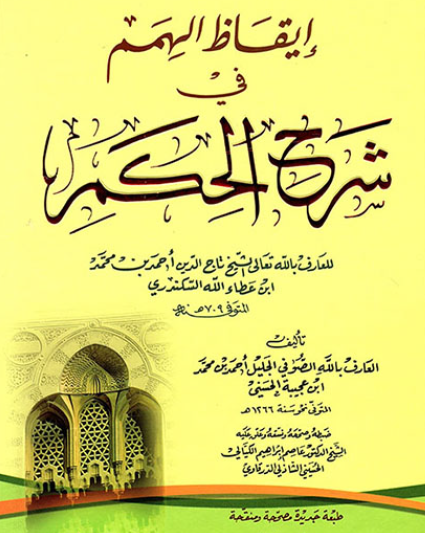 إيقاظ الهمم
في
شرح الحكم
للعارف بالله تعالى الشيخ تاج الدين أحمد بن محمد
ابن عطاء الله السكندري
المتوفى ٧٠٩ هـ
تأليف
العارف بالله الصوفي الجليل أحمد بن محمد
ابن عجيبة الحسني
المتوفى نحو سنة ١٢٦٦ هـ
ضبطه وصححه وعلق عليه
الشيخ الدكتور عاصم إبراهيم الكيالي
الحسيني الشاذلي الدرقاوي
طبعة جديدة مصححة ومنقحة